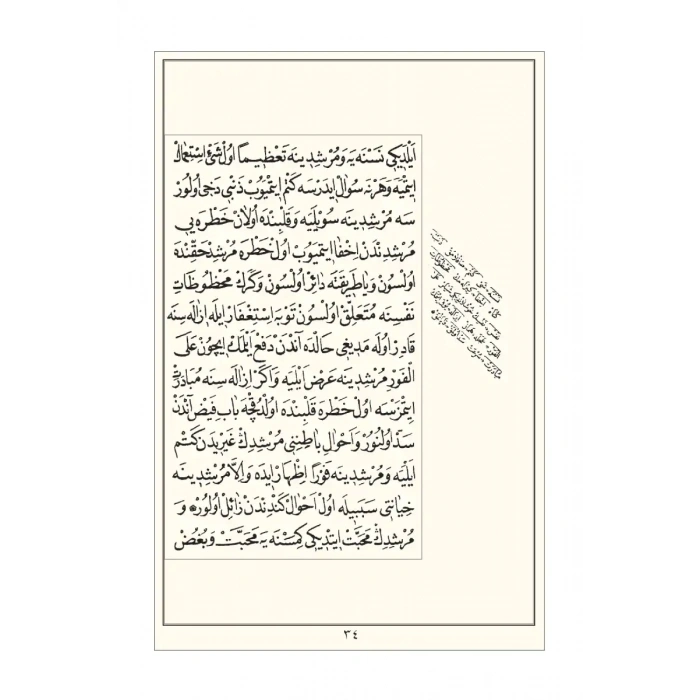 ايلديكى نسنه يه و مرشدينه تعظيماً اول شئ استعمال
ايتميه و هرنه سؤال ايدرسه كتم ايتميوب ذنبى دخى اولور
سه مرشدينه سويليه و قلبنده اولان خطره يى
مرشدندن اخفا ايتميوب اول خطره مرشد حقنده
اولسون و يا طريقته دائر اولسون و كرك محظوظات
نفسينه متعلق اولسون توبه استغفار ايله ازاله سنه
قادر اوله مديغى حالده آندن دفع ايلمك ايچون على
الفور مرشدينه عرض ايليه و اكر ازاله سنه مبادرت
ايتمزسه اول خطره قلبنده اولدقچه باب فيض آندن
سد اولنور و احوال باطنينى مرشدك غيريدن كتم
ايليه و مرشدينه فوراً اظهار ايده و الا مرشدينه
خيانتى سببيله اول احوال كندندن زائل اولور و
مرشدك محبت ايتديكى كمسنه يه محبت و بغض
٣٤